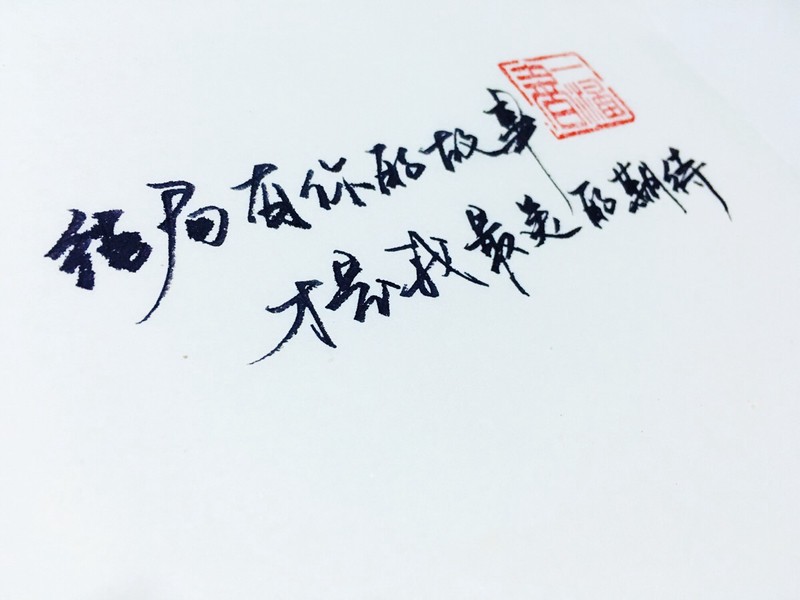 结局有你的故事
才是我最美的期待